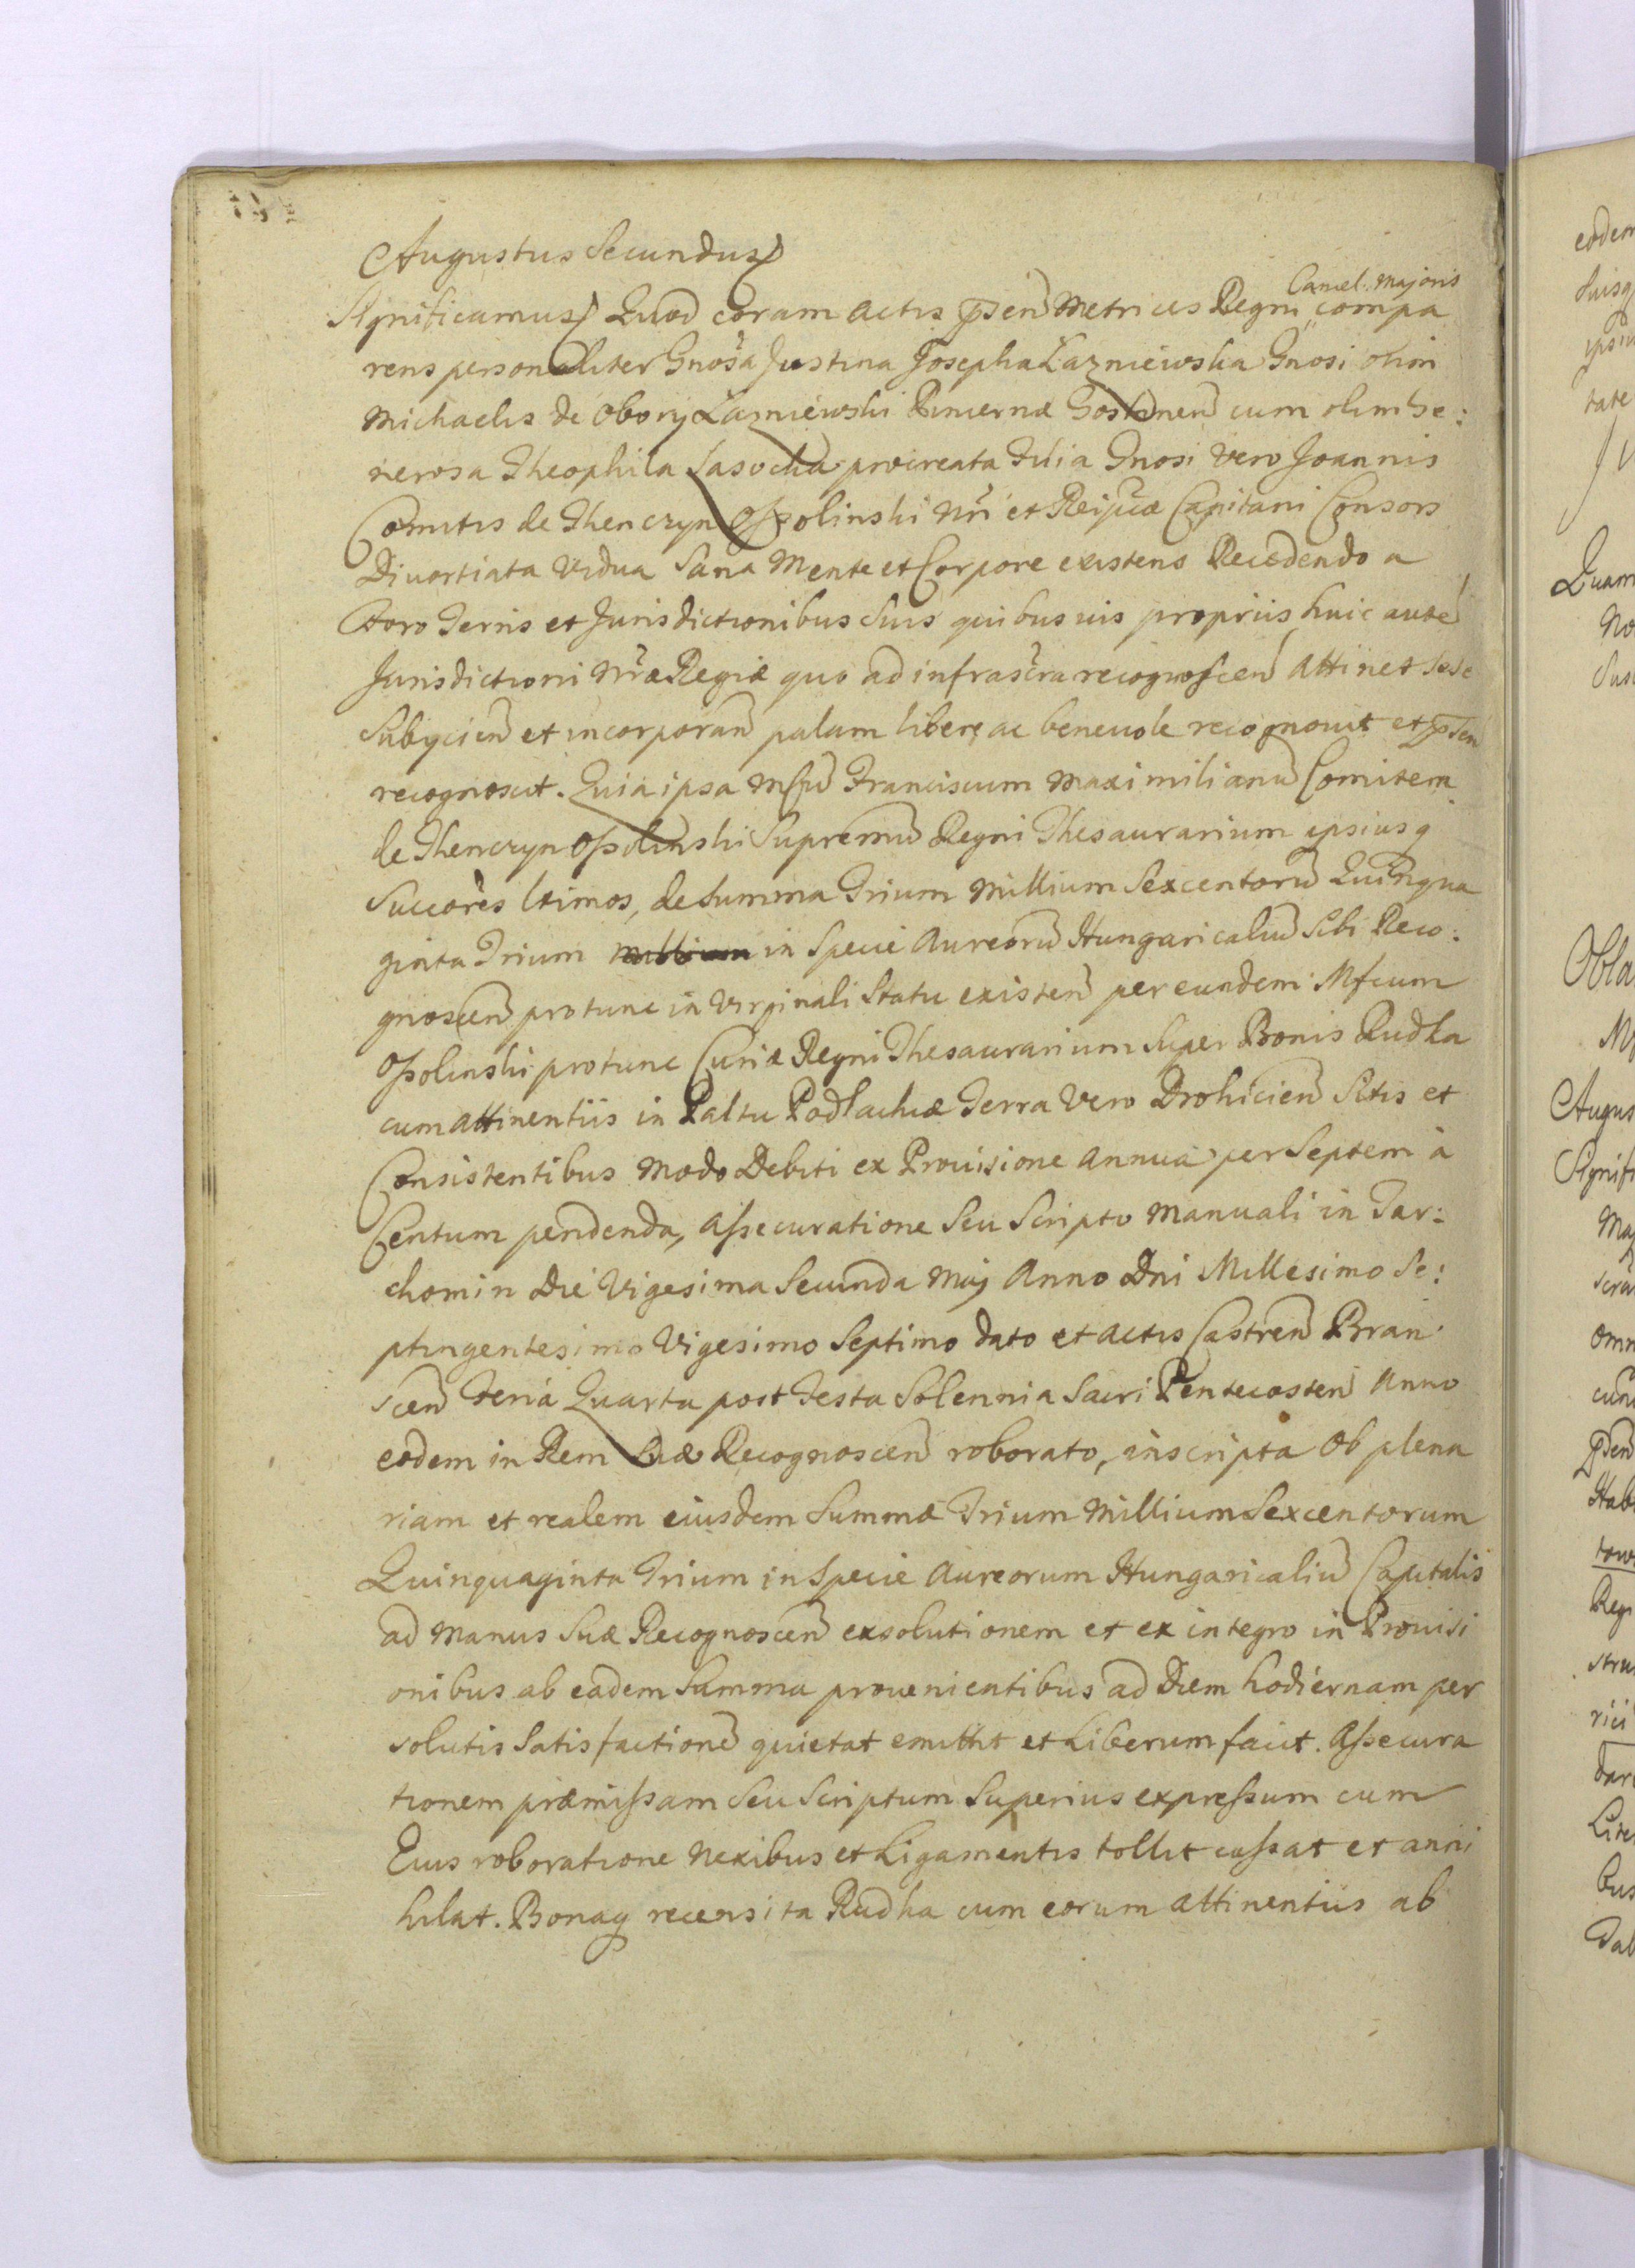 Augustus Secundus
Significamus Quod coram Actis psen Metrices Regni Cancel: Majoris compa
rens personaliter Gnosa Justina Josepha Łazniewska Gnosi olim
Michaelis de Obory Łazniewski Pincernæ Gostinen cum olim Ge:
nerosa Theophila Lasocka procreata Filia Gnosi vero Joannis
Comitis de Thenczyn Ossolinski Nri et Reipcæ Capitani Consors
Divortiata Vidua Sana Mente et Corpore existens Recedendo a
Foro Terris et Jurisdictionibus Suis quibusvis propriis huic aute
Jurisdictioni Nræ Regiæ quo ad infrascra recognoscen Attinet sese
Subycien et incorporan palam libere ac benevole recognovit et psen
recognoscit. Quia ipsa Mfcu Franciscum Maximilianu Comitem
de Thenczyn Ossolinski Supremu Regni Thesaurarium ipsiusq
Succores ltimos, de Summa Trium Millium Sexcentoru Quinqua
ginta Trium Millium in Specie Aureoru Hungaricaliu Sibi Reco:
gnoscen protunc in Virginali Statu existen per eundem Mfcum
Ossolinski protunc Curiæ Regni Thesaurarium Super Bonis Rudka
cum Attinentiis in Paltu Podlachiæ Terra Vero Drohicien Sitis et
Consistentibus Modo Debiti ex Provisione Annua per Septem à
Centum pendenda, Assecuratione Seu Scripto Manuali in Tar:
chomin Die Vigesima Secunda Maij Anno Dni Millesimo Se:
ptingentesimo Vigesimo Septimo dato et Actis Castren Bran
scen Feria Quarta post Festa Solennia Sacri Pentecosten Anno
eodem in Rem Suæ Recognoscen roborato, inscripta Ob plena
riam et realem eiusdem Summæ Trium Millium Sexcentorum
Quinquaginta Trium in Specie Aureorum Hungaricaliu Capitalis
ad Manus Suæ Recognoscen exsolutionem et ex integro in Provisi
onibus ab eadem Summa provenientibus ad Diem hodiernam per
solutis Satisfactione quietat emittit et Liberum facit. Assecura
tionem præmissam Seu Scriptum Superius expressum cum
Eius roboratione Nexibus et Ligamentis tollit cassat et anni
hilat. Bonaq recensita Rudka cum eorum Attinentiis ab
eodem
tate
Quam
No
Obla
Augus
Signifi
omn
Hab
Reg